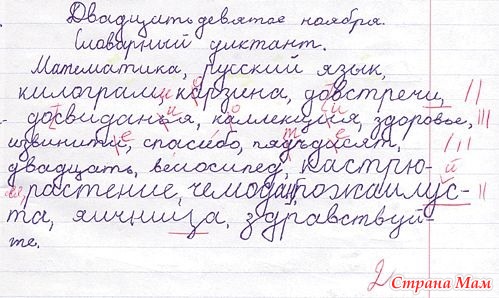 Двадцать девятое ноября.
Словарный диктант.
Математика, русский язык,
килограмм, карзина, довстречи,
досвиданья, каллекция, здоровье,
извинити, спасибо, пядьдисят,
двадцать, велосипед, кастрю-
растение, чемодан, пожаилус-
та, яичница, здравствуй-
те.
2
Страна Мам